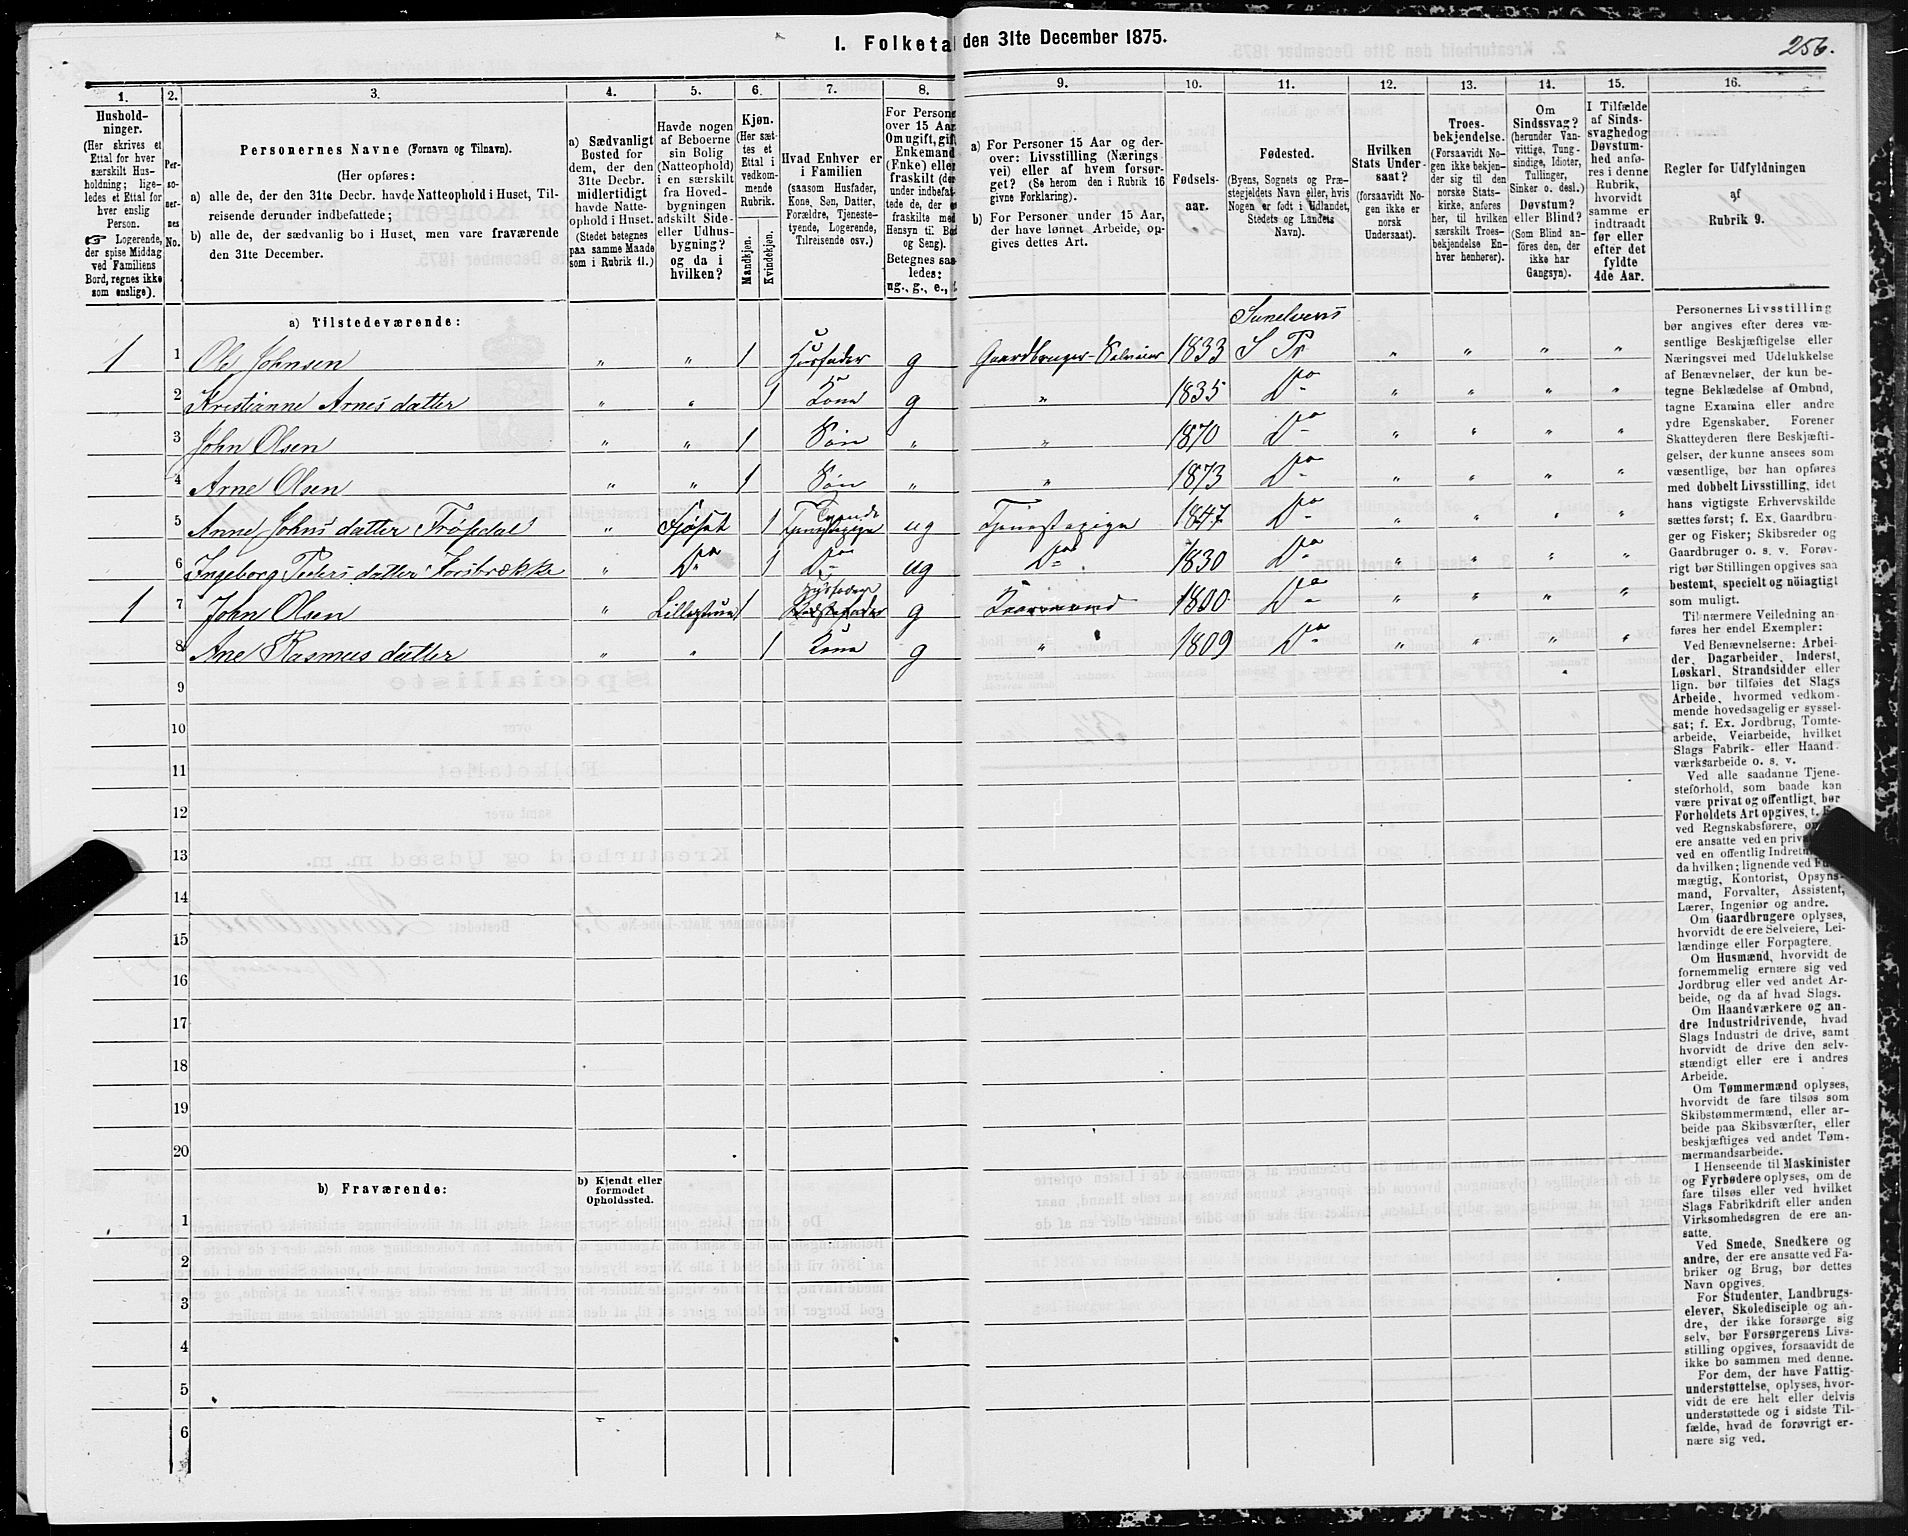 I. Folketal den 31te December 1875.
256.
1.
2.
3.
4.
5.
6.
7.
8.
9.
10.
11.
12.
13.
14.
15.
16.
Hushold-
ninger.
(Her skrives et
Ettal for hver
særskilt Hus-
holdning; lige-
ledes et Ettal for
hver enslig
Person.
☞ Logerende,
der spise Middag
ved Familiens
Bord, regnes ikke
som enslige).
Per-
so-
ner-
nes
No.
Personernes Navne (Fornavn og Tilnavn).
(Her opføres:
a) alle de, der den 31te Decbr. havde Natteophold i Huset, Til-
reisende derunder indbefattede;
b) alle de, der sædvanlig bo i Huset, men vare fraværende
den 31te December.
a) Sædvanligt
Bosted for
dem, der den
31te Decbr.
midlertidigt
havde Natte-
ophold i Huset.
(Stedet betegnes
paa samme Maade
som i Rubrik 11.)
Havde nogen
af Beboerne
sin Bolig
(Natteophold)
i en særskilt
fra Hoved-
bygningen
adskilt Side-
eller Udhus-
bygning?
og da i
hvilken?
Kjøn.
(Her sæt-
tes et
Ettal i
vedkom-
mende
Rubrik.
Mandkjøn.
Kvindekjøn.
Hvad Enhver er
i Familien
(saasom Husfader,
Kone, Søn, Datter,
Forældre, Tjeneste-
tyende, Logerende,
Tilreisende osv.)
For Persone
over 15 Aar
Om ugift, gift
Enkemand
(Enke) eller
fraskilt (der
under indbefat-
tede de, der er
fraskilte med
Hensyn til Bo
og Seng).
Betegnes saa
ledes:
ug., g., e.,
a) For Personer 15 Aar og der-
over: Livsstilling (Nærings
vei) eller af hvem forsør-
get? (Se herom den i Rubrik 16
givne Forklaring).
b) For Personer under 15 Aar,
der have lønnet Arbeide, op-
gives dettes Art.
Fødsels-
aar.
Fødested.
(Byens, Sognets og Præ-
stegjeldets Navn eller, hvis
Nogen er født i Udlandet,
Stedets og Landets
Navn).
Hvilken
Stats Under-
saat?
(forsaavidt No-
gen ikke er
norsk
Undersaat).
Troes-
bekjendelse.
(Forsaavidt No-
gen ikke bekjen-
der sig til den
norske Stats-
kirke, anføres
her, til hvilken
særskilt Troes-
bekjendelse En-
hver henhører).
Om
Sindssvag?
(herunder Van-
vittige, Tung-
sindige, Idioter,
Tullinger,
Sinker o. desl.)
Døvstum?
eller Blind?
(Som Blind an-
føres den, der
ikke har
Gangsyn).
I Tilfælde
af Sinds-
svaghed og
Døvstum-
hed anfø-
res i denne
Rubrik,
hvorvidt
samme er
indtraadt
før eller
efter det
fyldte
4de Aar.
Regler for Udfyldningen
af
Rubrik 9.
a) Tilstedeværende:
Sunelvens
1 1 Ole Johnsen " " 1 Husfader g Gaardbruger Selveier 1833 S Pr " " " "
2 Kristianne Arnesdatter " " 1 Kone g " 1835 Do " " " "
3 John Olsen " " 1 Søn " " 1870 Do " " " "
4 Arne Olsen " " 1 Søn " " 1873 Do " " " "
5 Anne Johnsdatter Frøysdal " Fjøset 1 Tyende Tjenestepige ug Tjenestepige 1847 Do " " " "
6 Ingeborg Pedersdatter Korsbrække " Do 1 Do ug Do 1830 Do " " " "
1 7 John Olsen " Lillestuen 1 Husfader g Kaarmand 1800 Do " " " "
8 Ane Rasmusdatter " " 1 Kone g " 1809 Do " " " "
9
10
11
12
13
14
15
16
17
18
19
20
b) Fraværende:
b) Kjendt eller
formodet
Opholdssted.
1
2
3
4
5
6
Personernes Livsstilling
bør angives efter deres væ-
sentlige Beskjæftigelse eller
Næringsvei med Udelukkelse
af Benævnelser, der kun be-
tegne Beklædelse af Ombud,
tagne Examina eller andre
ydre Egenskaber. Forener
Skatteyderen flere Beskjæfti-
gelser, der kunne ansees som
væsentlige, bør han opføres
med dobbelt Livsstilling, idet
hans vigtigste Erhvervskilde
sættes først; f. Ex. Gaardbru-
ger og Fisker; Skibsreder og
Gaardbruger o. s. v. Forøv-
rigt bør Stillingen opgives saa
bestemt, specielt og nöiagtigt
som muligt.
Til nærmere Veiledning an-
føres her endel Exempler:
Ved Benævnelserne: Arbei-
der, Dagarbeider, Inderst,
Løskarl, Strandsidder eller
lign. bør tilføies det Slags
Arbeide, hvormed vedkom-
mende hovedsagelig er syssel-
sat; f. Ex. Jordbrug, Tomte-
arbeide, Veiarbeide, hvilket
Slags Fabrik- eller Haand-
værksarbeide o. s. v.
Ved alle saadanne Tjene-
steforhold, som baade kan
være privat og offentligt, bør
Forholdets Art opgives, t. E
ved Regnskabsførere, om
ere ansatte ved en priv
ved en offentlig Indretn
da hvilken; lignende ved Fuld-
mægtig, Kontorist, Opsyns-
mand, Forvalter, Assistent,
Lærer, Ingeniør og andre.
Om Gaardbrugere oplyses,
hvorvidt de ere Selveiere, Lei-
lændinge eller Forpagtere.
Om Husmænd, hvorvidt de
fornemmelig ernære sig ved
Jordbrug eller ved andet Ar-
beide, og da af hvad Slags.
Om Haandværkere og an-
dre Industridrivende, hvad
Slags Industri de drive, samt
hvorvidt de drive den selv-
stændigt eller ere i andres
Arbeide.
Om Tømmermænd oplyses,
hvorvidt de fare tilsøs som
Skibstømmermænd, eller ar-
beide paa Skibsværfter, eller
beskjæftiges ved andet Tøm-
mermandsarbeide.
I Henseende til Maskinister
og Fyrbødere oplyses, om de
fare tilsøs eller ved hvilket
Slags Fabrikdrift eller anden
Virksomhedsgren de ere an-
satte.
Ved Smede, Snedkere og
andre, der ere ansatte ved Fa-
briker og Brug, bør dettes
Navn opgives.
For Studenter, Landbrugs-
elever, Skoledisciple og an-
dre, der ikke forsørge sig
selv, bør Forsørgerens Livs-
stilling opgives, forsaavidt de
ikke bo sammen med denne.
For dem, der have Fattig-
understøttelse, oplyses, hvor-
vidt de ere helt eller delvis
understøttede og i sidste Til-
fælde, hvad de forøvrigt er-
nære sig ved.